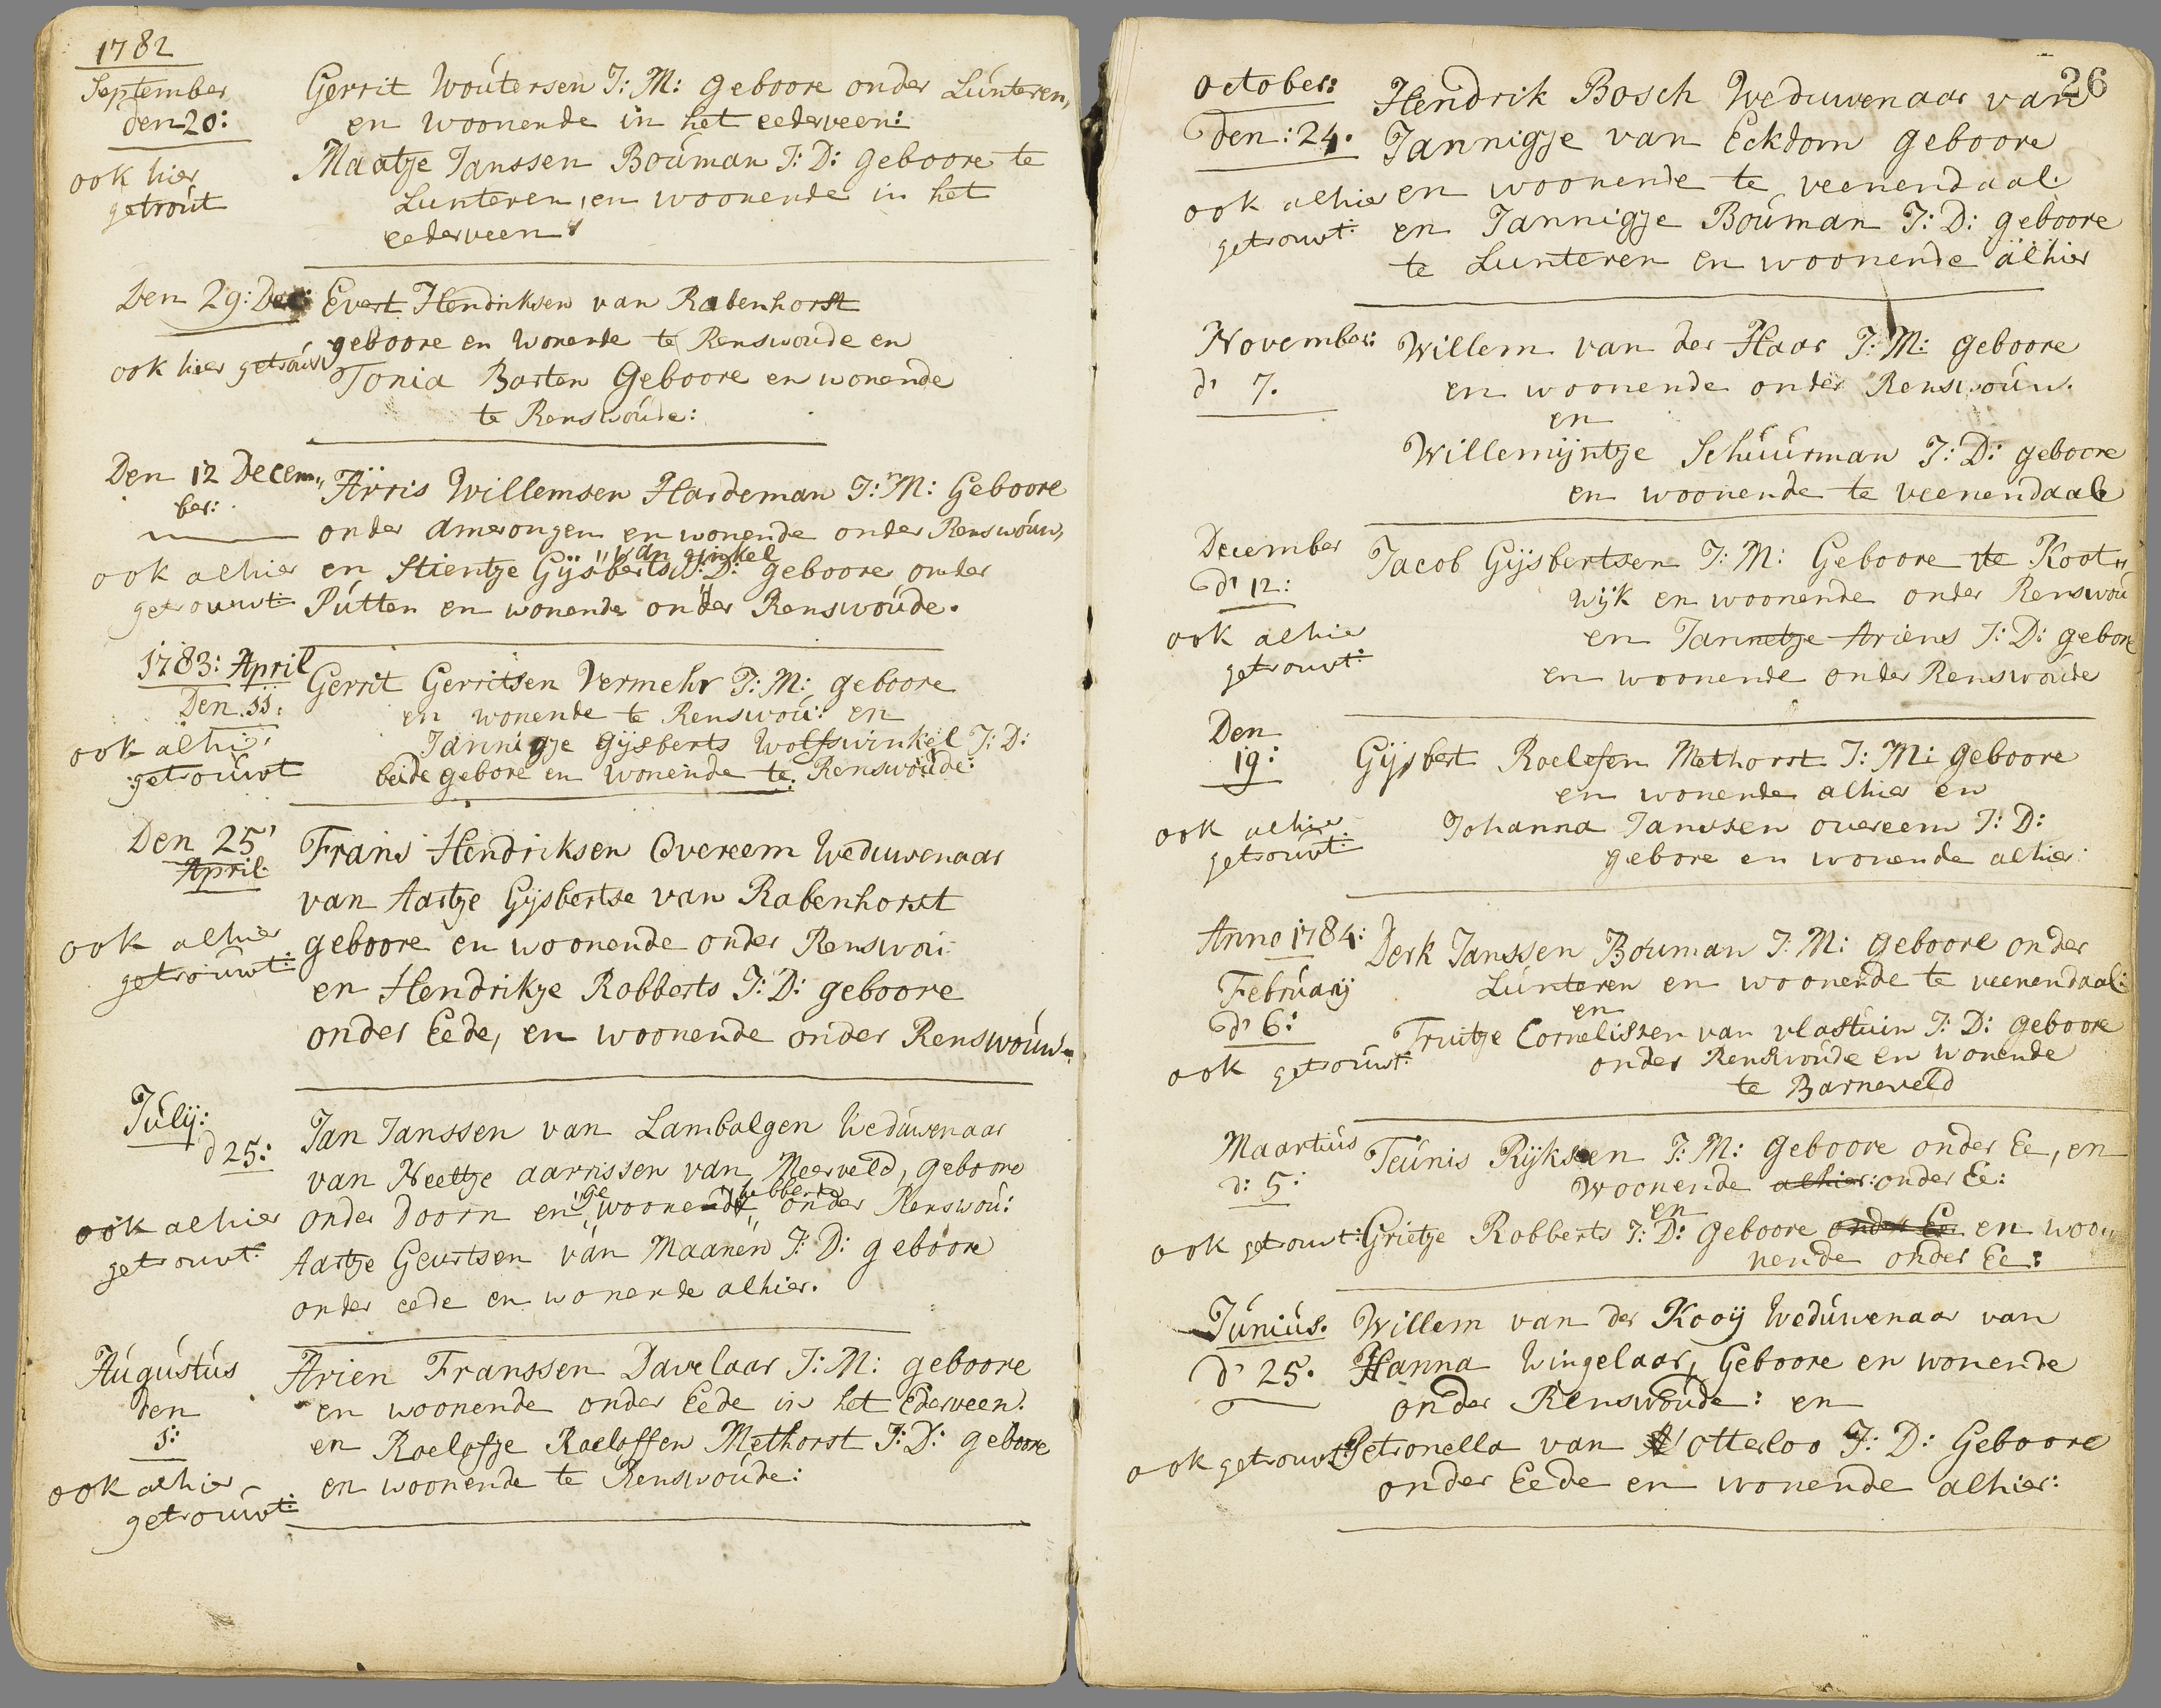 1782
September
den 20:
ook hier
getroút
Gerrit Woútersen J: M: geboore onder Lúnteren,
en woonende in het eederveen:
Maatje Janssen Boúman J: D: geboore te
Lunteren, en woonende in het
eederveen
Den 29: Dec:
ook hier getroúwt
Evert Hendriksen van Rabenhorst
geboore en wonende te Renswoude en
Tonia Barten Geboore en wonende
te Renswoúde:
Den 12 Decem„
ber:
ook alhier
getrouwt:
Arris Willemsen Hardeman J: M: Geboore
onder Amerongen en wonende onder Renswoúw,
"van ginkel
en Stientje Gijsberts J: D: geboore onder
Pútten en wonende onder Renswoúde.
1783: April
Den 11:
ook alhier
getroúwt
Gerrit Gerritsen Vermehr J: M: geboore
en wonende te Renswoú: en
Jannigje Gijsberts Wolfswinkel J: D:
beide gebore en wonende te Renswoúde:
Den 25'
April
ook alhier
getroúwt:
Frans Hendriksen Overeem Weduwenaar
van Aartje Gijsbertse van Rabenhorst
geboore en woonende onder Renswoú:
en Hendrikje Robberts J: D: geboore
onder Eede, en woonende onder Renswoúw:
Júlij:
d 25:
ook alhier
getrouwt:
Jan Janssen van Lambalgen Wedúwenaar
van Neeltje aarrissen van Meerveld, geboore
onder Doorn en "ge woonend "hebbende onder Renswoú:
Aartje Geurtsen van Maanen J: D: geboore
onder eede en wonende alhier.
Aúgústús
den
1:
ook alhier
getroúwt:
Arien Franssen Davelaar J: M: geboore
en woonende onder Eede in het Ederveen.
en Roelofje Roeloffen Methorst J: D: geboore
en woonende te Renswoúde:
26
October:
den: 24.
ook alhier
getrouwt:
Hendrik Bosch Weduwenaar van
Jannigje van Eckdom geboore
en woonende te veenendaal.
en Jannigje Boúman J: D: geboore
te Lunteren en woonende alhier
November:
d' 7.
Willem van der Haar J: M: geboore
en woonende onder Renswoúw.
en
Willemijntje Schúúrman J: D: geboore
en woonende te veenendaal
December
d' 12:
ook alhier
getrouwt:
Jacob Gijsbertsen J: M: Geboore te Koot„
wijk en woonende onder Renswoú
en Jannetje Ariens J: D: gebore
en woonende onder Renswoude
Den
19:
ook alhier
getroúwt:
Gijsbert Roelofsen Methorst J: M: geboore
en wonende alhier en
Johanna Janssen overeem J: D:
gebore en wonende alhier:
Anno 1784:
Febrúarij
d' 6:
ook getroúwt:
Derk Janssen Bouman J: M: geboore onder
Lúnteren en woonende te veenendaal:
en
Truitje Cornelissen van vlastuin J: D: geboore
onder Renswoúde en wonende
te Barneveld
Maartiús
d: 5:
ook getrouwt:
Teúnis Rijksen J: M: Geboore onder Ee, en
Woonende alhier: onder Ee:
en
Grietje Robberts J: D: geboore onder Ee en woo„
nende onder Ee:
Júniús.
d' 25.
ook getrouwt:
Willem van der Kooij Wedúwenaar van
Hanna Wingelaar, Geboore en wonende
onder Renswoude: en
Petronella van Otterloo J: D: Geboore
onder Eede en wonende alhier: